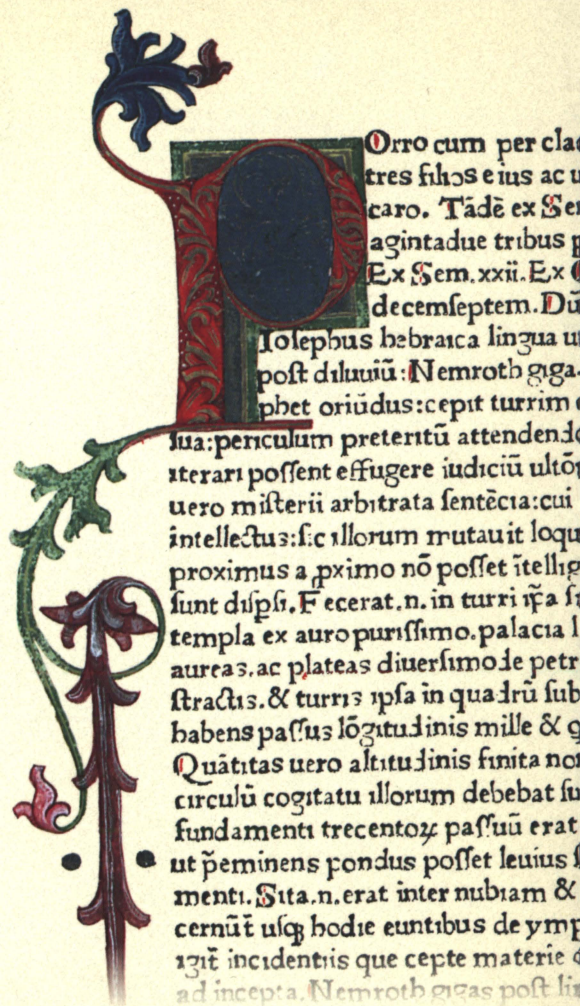 POrro cum per cla
tres filios eius ac u
caro. Tãdẽ ex Se
agintadue tribus p
Ex Sem.xxii. Ex
decemſeptem. Dũ
Ioſephus hebraica lingua u
poſt diluuiũ: Nemroth giga
phet oriũdus: cepit turrim
ſua: periculum preteritũ attendendo
iterari poſſent effugere iudiciũ ultõ
uero miſterii arbitrata ſentẽcia: cui
intellectus: ſic illorum mutauit loqu
proximus a ꝓximo nõ poſſet ĩtellig
ſunt diſpſi. Fecerat.n. in turri ip̃a
templa ex auro puriſſimo. palacia
aureas. ac plateas diuerſimode petr
ſtractis. & turris ipſa in quadrũ ſub
habens paſſus lõgitudinis mille &
Quãtitas uero altitudinis finita no
circulũ cogitatu illorum debebat ſu
fundamenti trecentoꝝ paſſuũ erat
ut p̃eminens pondus poſſet leuius
menti. Sita.n. erat inter nubiam &
cernũt uſqꝫ hodie euntibus de ymp
igit̃ incidentiis que cepte materie
ad incepta. Nemroth gigas poſt